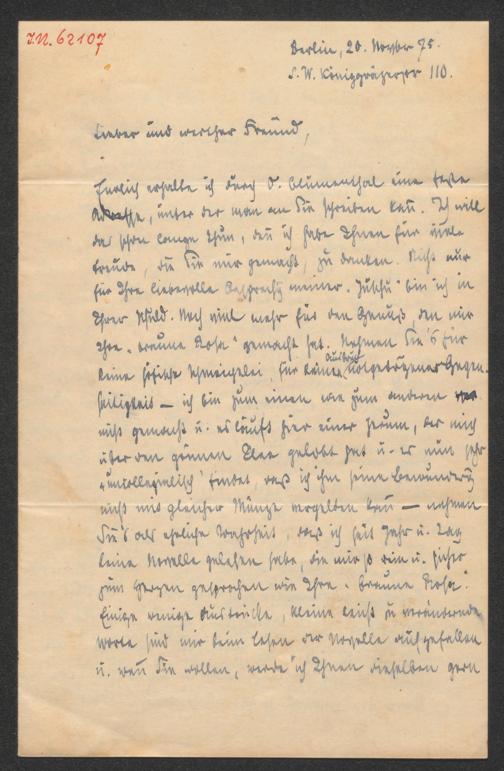 I.N. 62107
Berlin, 20. Novber 75.
S. W. Königgrätzerstr 110.
Lieber und werther Freund,
Endlich erhalte ich durch O. Blumenthal eine feste
Adresse, unter der man an Sie schreiben kañ. Ich will
das schon lange thun, deñ ich habe Ihnen für viele
Freude, die Sie mir gemacht, zu danken. Nicht nur
für Ihre liebevolle Besprechg meiner " bin ich in
Ihrer Schuld. Noch viel mehr für den Genuß, den mir
Ihre „braune Rosa" gemacht hat. Nehmen Sie's für
keine höfliche Schmeichelei, für keinen Ausdruck nothgedrungener Gegen-
seitigkeit — ich bin zum einen wie zum anderen
nicht gemacht u. es läuft hier einer herum, der mich
über den grünen Klee gelobt hat u. es nun sehr
„uncollegialisch" findet, daß ich ihm seine Bewunderg
nicht mit gleicher Münze vergelten kañ — nehmen
Sie's als ehrliche Wahrheit, daß ich seit Jahr u. Tag
keine Novelle gelesen habe, die mir so rein u. sicher
zum Herzen gesprochen wie Ihre „braune Rosa".
Einige wenige Ausdrücke, kleine leicht zu verändernde
Worte sind mir beim Lesen der Novelle aufgefallen
u. weñ Sie wollen, werde ich Ihnen dieselben gern